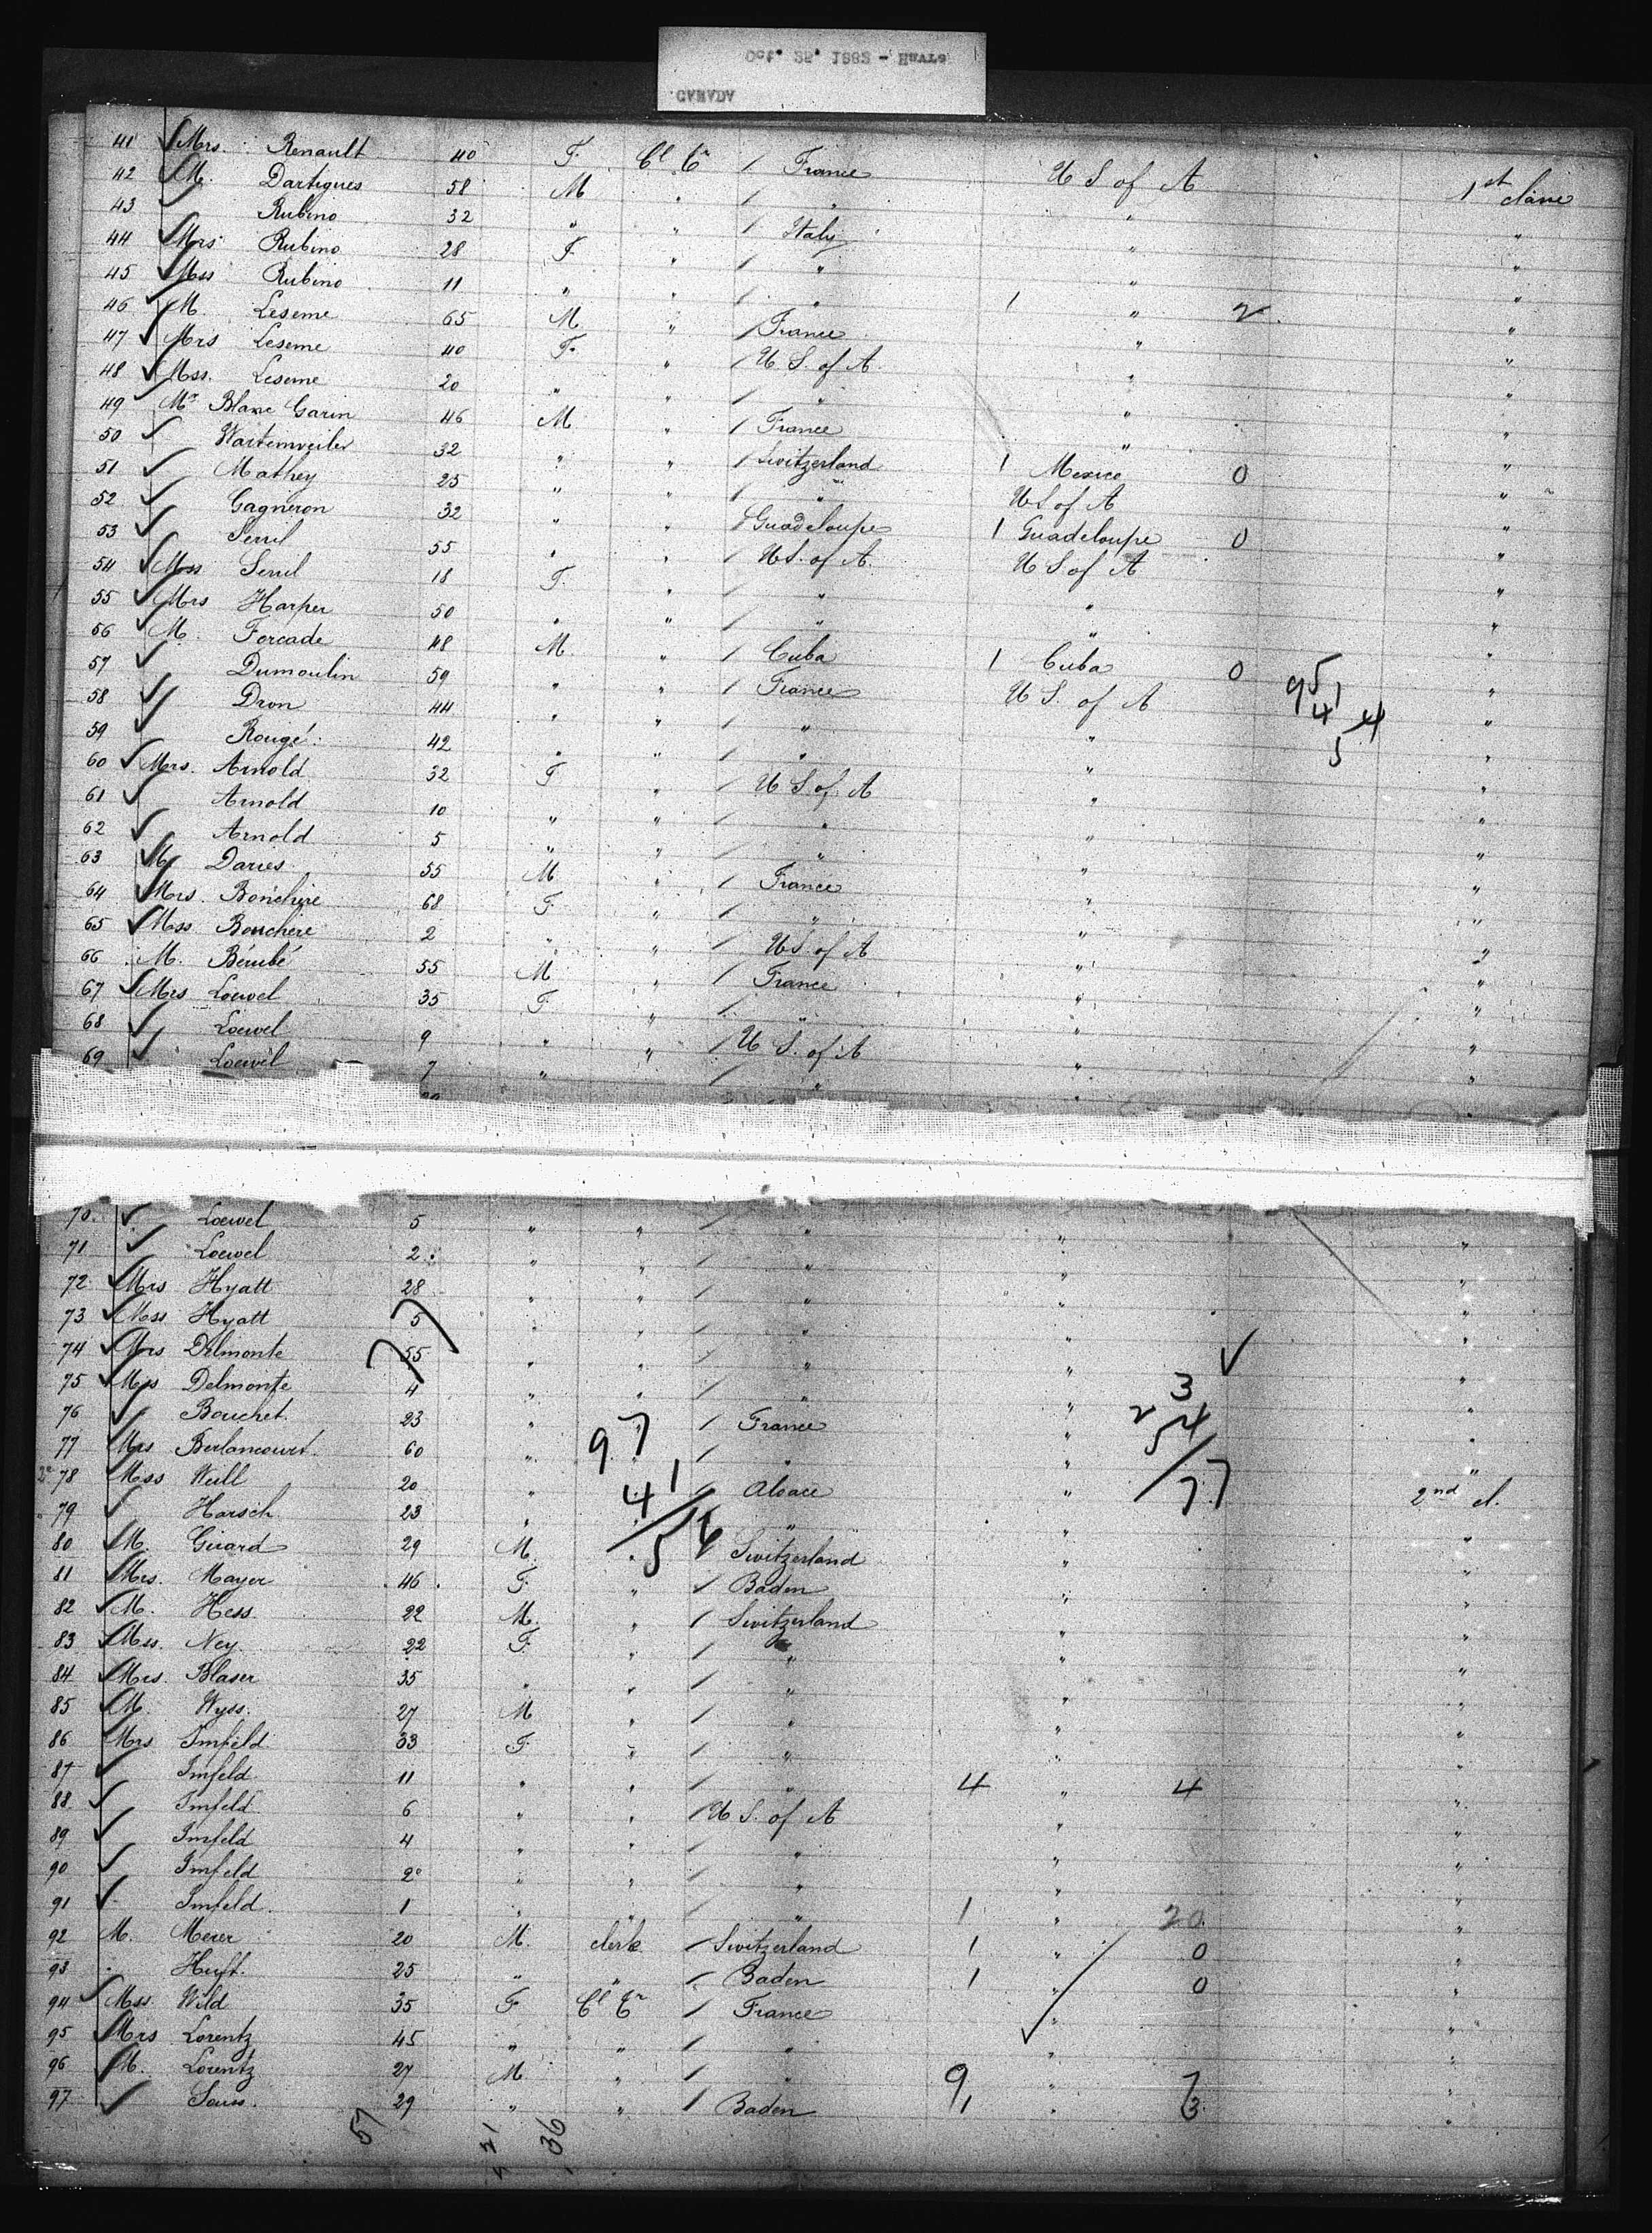 Oct. 25. 1882 - Havre
CANADA
41 Mrs. Renault 40 F. Cl Cr / France U S of A 1st classe
42 M. Dartigues 58 M " / " " "
43 Rubino 32 " " / Italy " "
44 Mrs Rubino 28 F " / " " "
45 Mss Rubino 11 " " / " 1 " 2 "
46 M. Leseme 65 M " / France " "
47 Mrs Leseme 40 F. " / U S. of A. " "
48 Mss. Leseme 20 " " / " " "
49 Mr Blanc Garin 46 M " / France " "
50 Wartenweiler 32 " " / Switzerland 1 Mexico 0 "
51 Mathey 25 " " / " U S of A "
52 Gagneron 32 " " / Guadeloupe 1 Guadeloupe 0 "
53 Serril 55 " " / U S. of A. U S of A "
54 Mss Serril 18 F. " / " " "
55 Mrs Harper 50 " " / " " "
56 M. Forcade 48 M " / Cuba 1 Cuba 0 "
57 Dumoulin 59 " " / France U S. of A "
58 Dron 44 " " / " " "
59 Rougé 42 " " / " " "
60 Mrs. Arnold 32 F " / U S of A " "
61 Arnold 10 " " / " " "
62 Arnold 5 " " / " " "
63 M. Daries 55 M " / France " "
64 Mrs. Bouchère 68 F. " / " " "
65 Mss Bouchere 2 " " / U S. of A " "
66 M. Bérubé 55 M " / France " "
67 Mrs Loewel 35 F. " / " " "
68 Loewel 9 " " / U S. of A " "
69 Loewel 7 " / " " "
70. Loewel 5 " " / " " "
71 Loewel 2 " " / " "
72 Mrs Hyatt 28 " " / " " "
73 Mss Hyatt 5 " " / " "
74 Mrs Delmonte 55 " " / " " "
75 Mss Delmonte 4 " " / " " 3 "
76 Bouchet 23 " / France " 2 54 "
77 Mrs Berlancourt 60 " 97 / " " "
2e 78 Mss Weill 20 " 41 / Alsace " 77 2nd cl.
79 Harsch 23 " " "
80 M. Girard 29 M. " 56 / Switzerland " "
81 Mrs. Mayer 46 F. " / Baden " "
82 M. Hess 22 M. " / Switzerland " "
83 Mss. Ney 22 F. " / " " "
84 Mrs. Blaser 35 " " / " "
85 M. Wyss. 27 M " / " " "
86 Mrs Imfeld 33 F. " / " " "
87 Imfeld 11 " " / " 4 " 4
88 Imfeld 6 " " / U S. of A " "
89 Imfeld 4 " " / " " "
90 Imfeld 2 " " / " " "
91 Imfeld 1 " " / " 1 " 20 "
92 M. Meier 20 M. clerk / Switzerland 1 " 0 "
93 Huft. 25 " " / Baden 1 " 0
94 Mss. Wild 35 F Cl Cr / France " "
95 Mrs Lorentz 45 " " / " " "
96 M. Lorentz 27 M " / " 9 " 7 "
97 29 " " / Baden 1 " 3 "
57 21 36